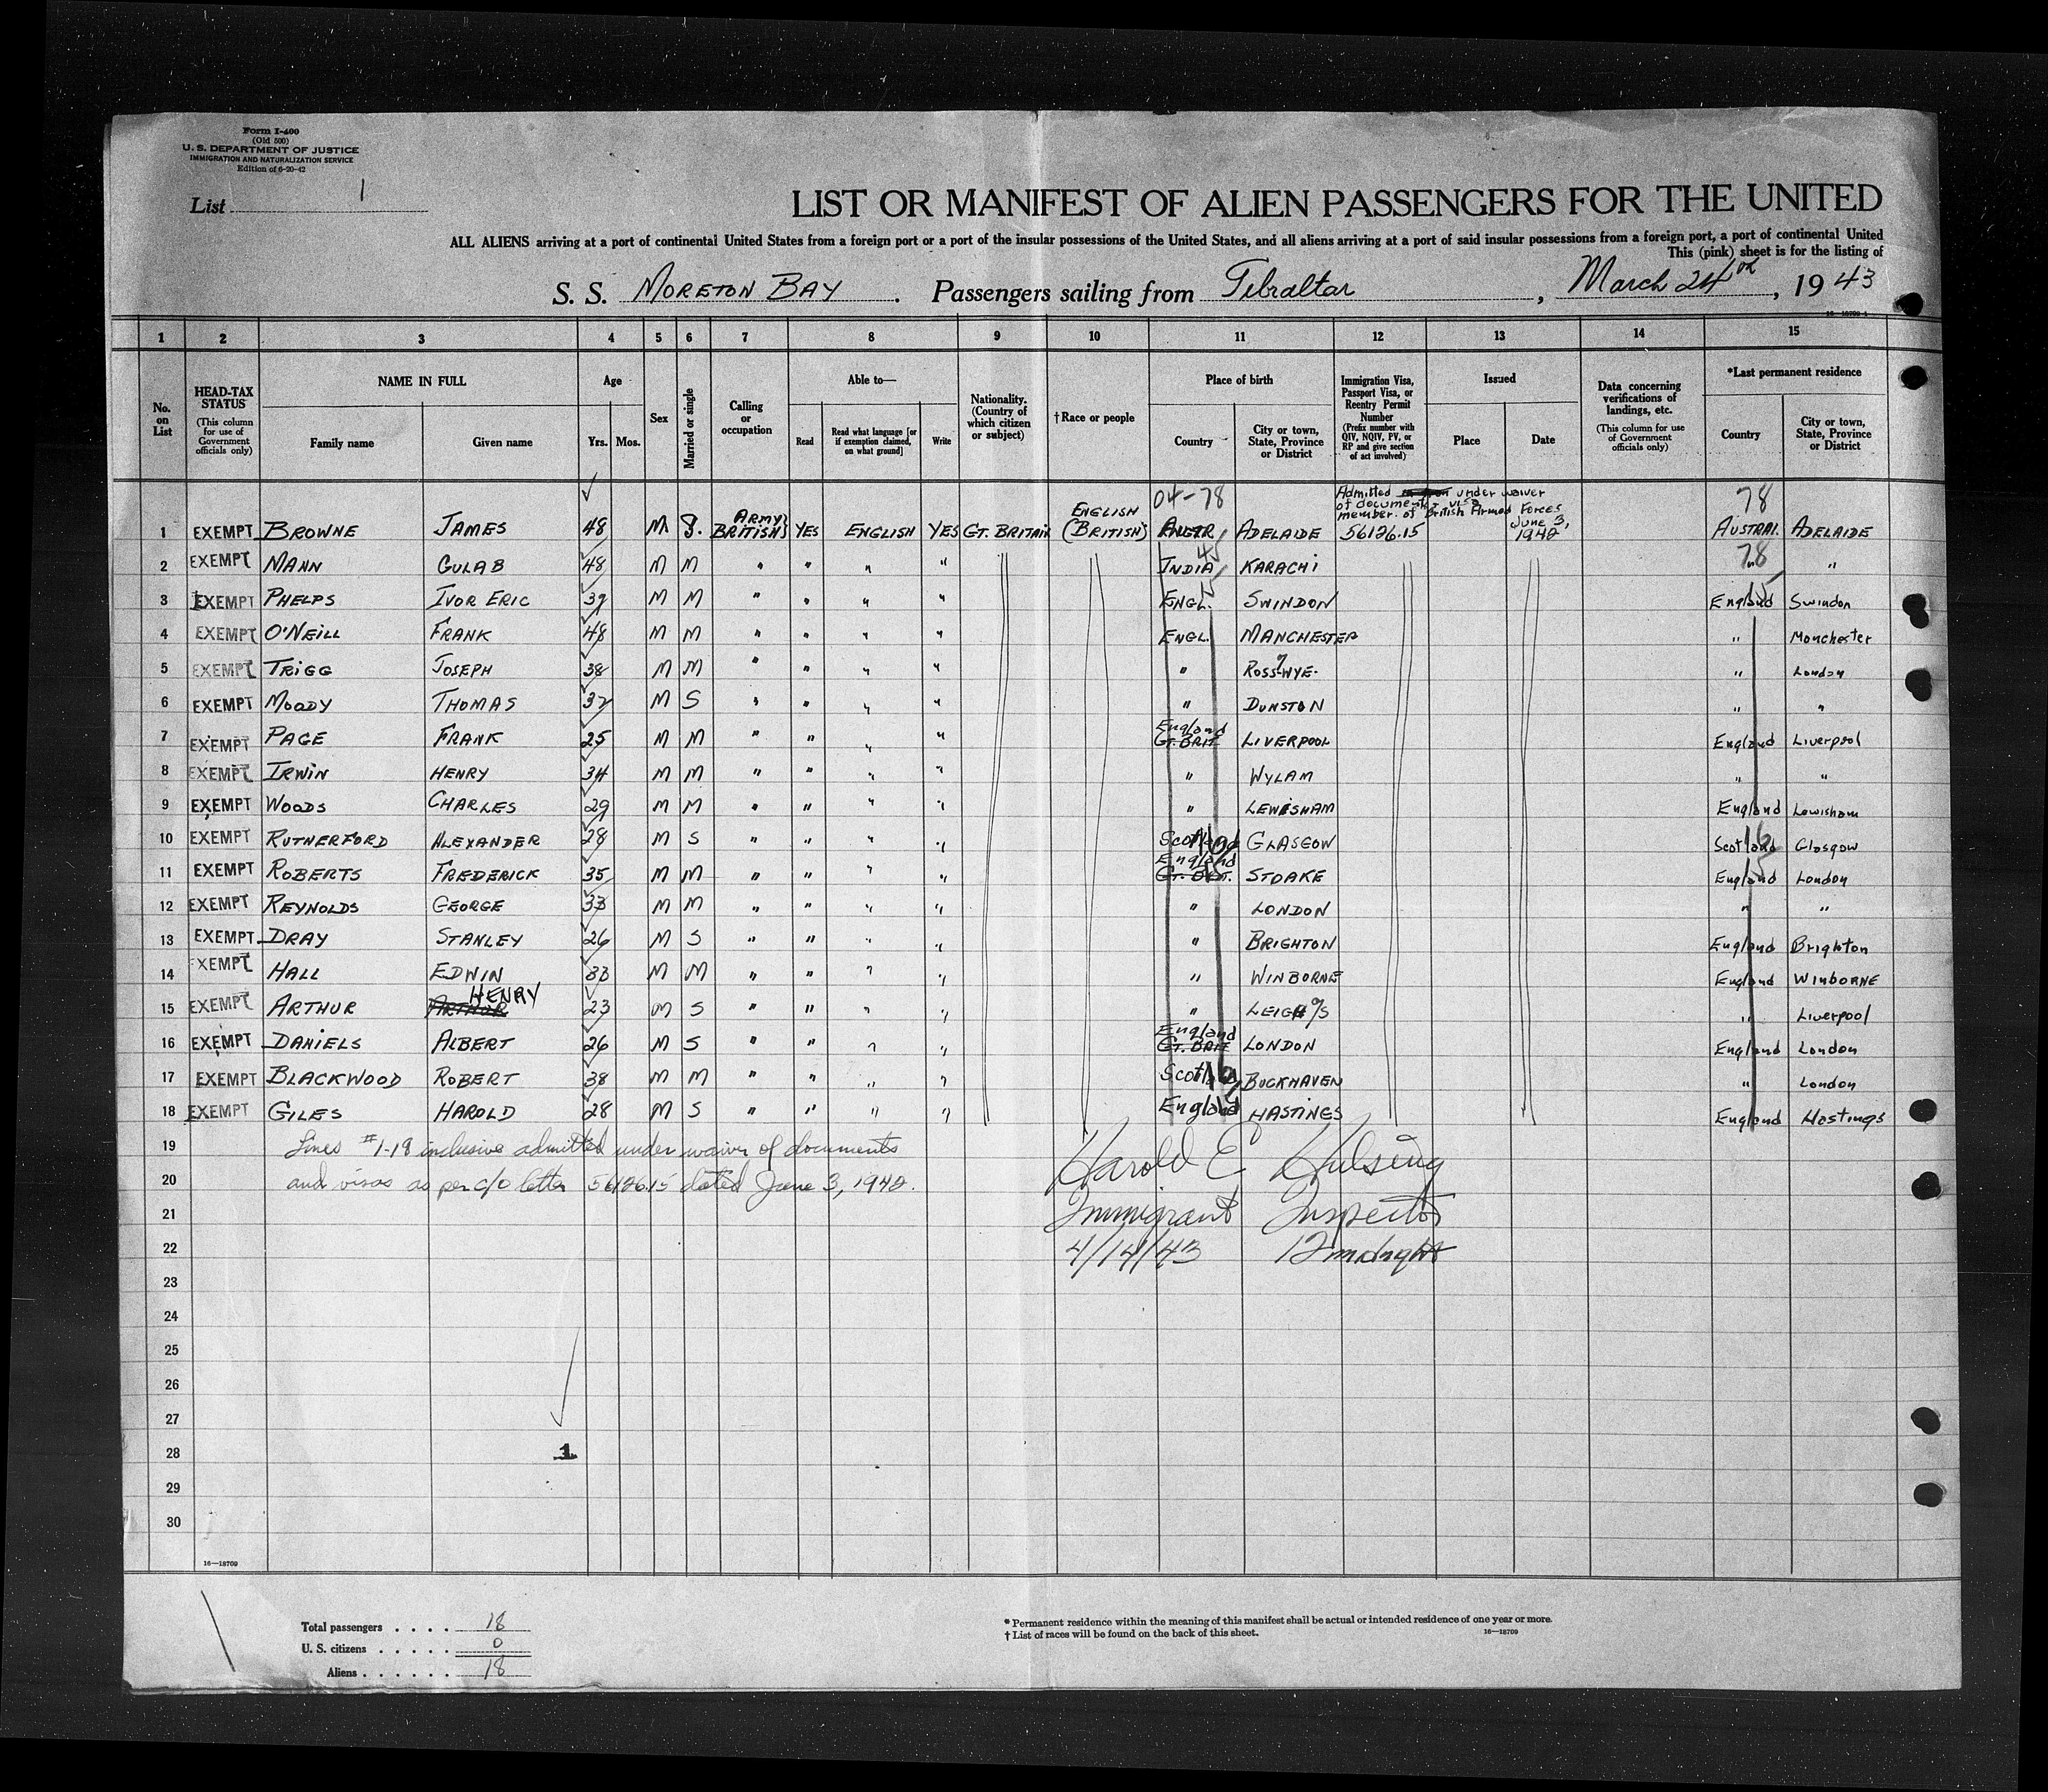 Form I-400
(Old 500)
U. S. DEPARTMENT OF JUSTICE
IMMIGRATION AND NATURALIZATION SERVICE
Edition of 6-20-42
List 1
LIST OR MANIFEST OF ALIEN PASSENGERS FOR THE UNITED
ALL ALIENS arriving at a port of continental United States from a foreign port or a port of the insular possessions of the United States, and all aliens arriving at a port of said insular possessions from a foreign port, a port of continental United
This (pink) sheet is for the listing of
S. S. MORETON BAY. Passengers sailing from Gibraltar, March 24, 1943
16—18709-1
1 2 3 4 5 6 7 8 9 10 11 12 13 14 15
No. on List
HEAD-TAX STATUS (This column for use of Government officials only)
NAME IN FULL Family name Given name
Age Yrs. Mos.
Sex
Married or single
Calling or occupation
Able to— Read Read what language [or if exemption claimed, on what ground] Write
Nationality. (Country of which citizen or subject)
† Race or people
Place of birth Country City or town, State, Province or District
Immigration Visa, Passport Visa, or Reentry Permit Number (Prefix number with QIV, NQIV, PV, or RP and give section of act involved)
Issued Place Date
Data concerning verifications of landings, etc. (This column for use of Government officials only)
*Last permanent residence Country City or town, State, Province or District
04-78 Admitted under waiver of documents, visa member of British Armed Forces 78
1 EXEMPT BROWNE JAMES 48 M S. ARMY BRITISH YES ENGLISH YES GT. BRITAIN ENGLISH (BRITISH) ADELAIDE 56126.15 June 3, 1942 AUSTRAL. ADELAIDE
2 EXEMPT MANN GULAB 48 M M " " " " INDIA 45 KARACHI 78 " "
3 EXEMPT PHELPS IVOR ERIC 39 M M " " " " ENGL. 15 SWINDON England 15 Swindon
4 EXEMPT O'NEILL FRANK 48 M M " " " " ENGL. MANCHESTER " Manchester
5 EXEMPT TRIGG JOSEPH 38 M M " " " " " ROSS WYE " London
6 EXEMPT MOODY THOMAS 32 M S " " " " " DUNSTON " "
7 EXEMPT PAGE FRANK 25 M M " " " " England GT. BRIT LIVERPOOL England Liverpool
8 EXEMPT IRWIN HENRY 34 M M " " " " " WYLAM " "
9 EXEMPT WOODS CHARLES 29 M M " " " " " LEWISHAM England Lewisham
10 EXEMPT RUTHERFORD ALEXANDER 28 M S " " " " Scotland 16 GLASGOW Scotland 16 Glasgow
11 EXEMPT ROBERTS FREDERICK 35 M M " " " " England GT. BRIT. STOAKE England 15 London
12 EXEMPT REYNOLDS GEORGE 33 M M " " " " " LONDON " "
13 EXEMPT DRAY STANLEY 26 M S " " " " " BRIGHTON England Brighton
14 EXEMPT HALL EDWIN 33 M M " " " " " WINBORNE England WINBORNE
15 EXEMPT ARTHUR ARTHUR HENRY 23 M S " " " " " LEIGH O/S " Liverpool
16 EXEMPT DANIELS ALBERT 26 M S " " " " England GT. BRIT LONDON England London
17 EXEMPT BLACKWOOD ROBERT 38 M M " " " " Scotland BUCKHAVEN " London
18 EXEMPT GILES HAROLD 28 M S " " " " England HASTINGS England Hastings
19 Lines #1-18 inclusive admitted under waiver of documents
20 and visas as per c/o letter 56126.15 dated June 3, 1942.
Harold E Hulsing
21 Immigrant Inspector
22 4/14/43 12 midnight
23
24
25
26
27
28 1
29
30
16—18709
Total passengers . . . . 18
U. S. citizens . . . . . 0
Aliens . . . . . . 18
* Permanent residence within the meaning of this manifest shall be actual or intended residence of one year or more.
† List of races will be found on the back of this sheet. 16—18709